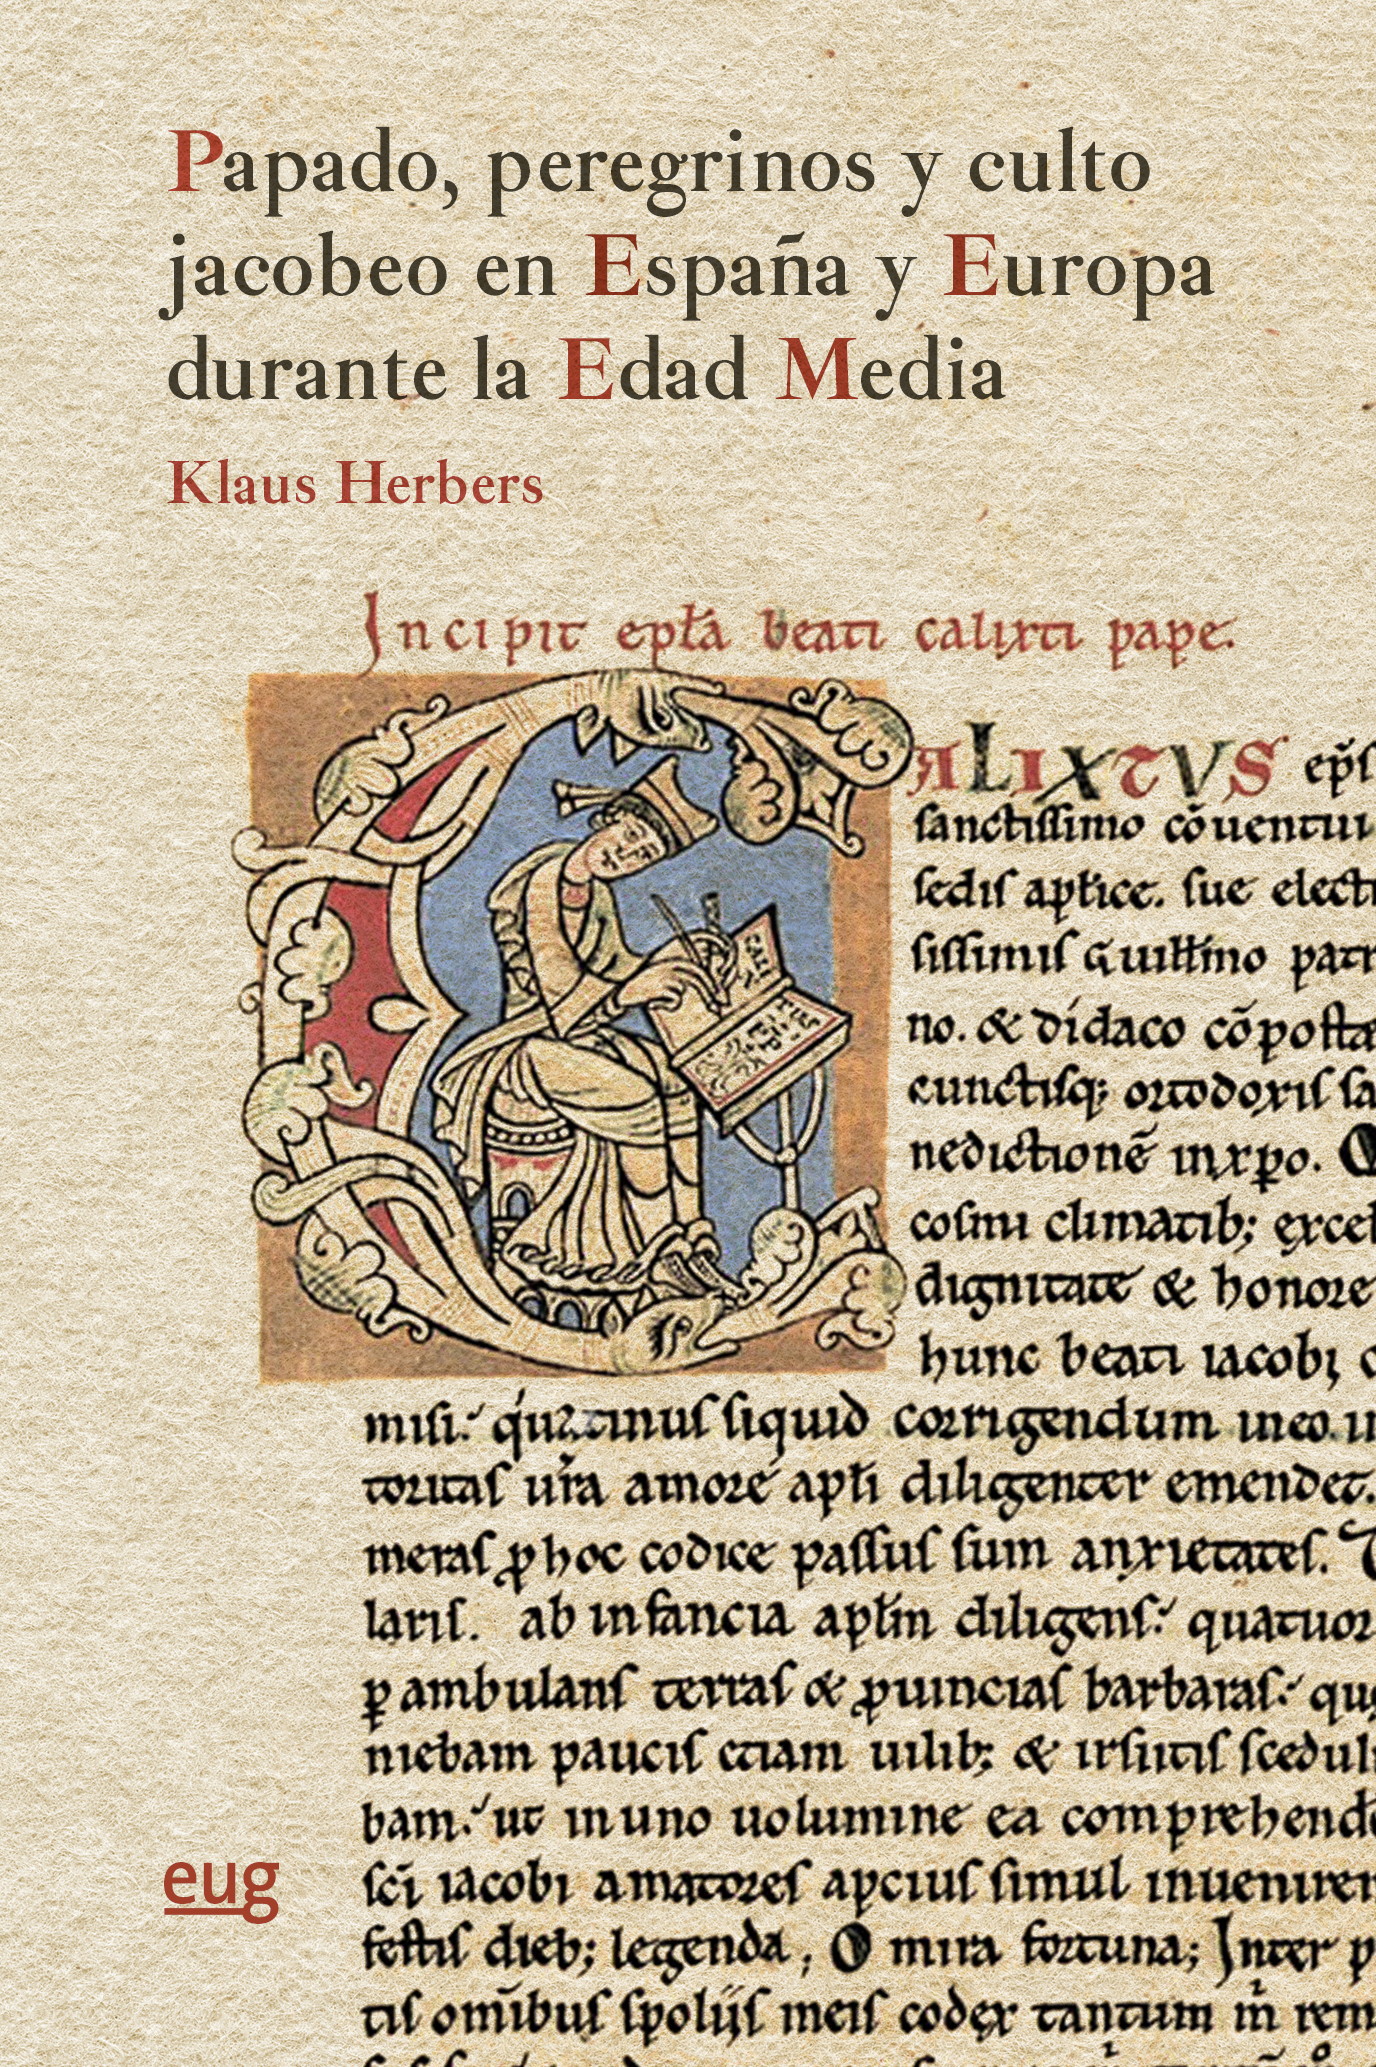 Papado, peregrinos y culto
jacobeo en España y Europa
durante la Edad Media
Klaus Herbers
Incipit epła beati calixti pape.
ALIXTVS ep̃s
sanctissimo cõuentui
sedis apłice. sue elect
sissimis Guillmo patr
no. & didaco cõposta
cunctisq; ortodoxis sa
nedictionẽ inxpo.
cosmi climatib; excel
dignitate & honore
hunc beati iacobi c
misi. siquid corrigendum ineo
toritas ur̃a amore apłi diligenter emendet.
meras hoc codice passus sum anxietates.
laris. ab infancia apłm diligens. quatuor
ambulans terras & barbaras.
niebam paucis uilib; & irsutis scedul
bam. ut in uno uolumine ea comprehend
sc̃i iacobi amatores apcius simul inuenirent
festis dieb; legenda; O mira fortuna; Inter p
tis om̃ibus spolijs meis codex tantum rem
eug